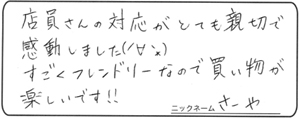 店員さんの対応がとても親切で
感動しました(/∀`×)
すごくフレンドリーなので買い物が
楽しいです!!
ニックネーム さーや